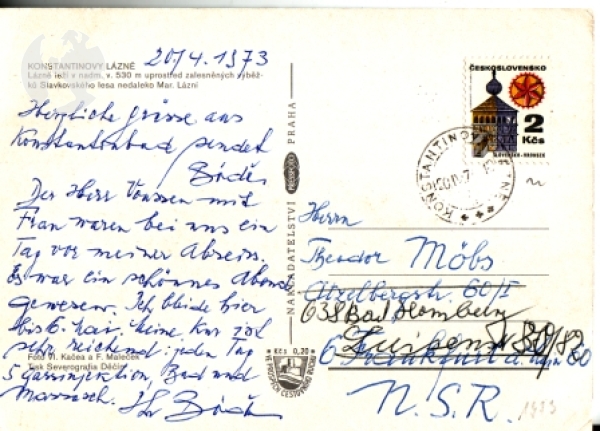 20/4. 1973
KONSTANTINOVY LÁZNĚ
Lázně leží v nadm. v. 530 m uprostřed zalesněných výběž-
ků Slavkovského lesa nedaleko Mar. Lázní
Herzliche Grüsse aus
Konstantinbad sendet
Der Herr
mit
Frau waren bei uns ein
Tag vor meiner Abreise.
Es war ein schönnes Abend
gewesen. Ich bleibe hier
bis 6. Mai. Meine Kur ist
sehr reichend: jeden Tag
5 Gassinjektion, Bad und
Massasch. Ihr
Foto Vl. Kačea a F. Maleček
Tisk Severografia Děčín
NAKLADATELSTVÍ PRESSFOTO PRAHA
Kčs 0,30
VE PROSPĚCH CESTOVNÍHO RUCHU
ČESKOSLOVENSKO
2
Kčs
SLOVENSKO - HRONSEK
KONSTANTINOVY LÁZNĚ
Herrn
Theodor Möbs
60/I
638 Bad Homburg
6 Frankfurt a. Main 60
N. S. R.
1973